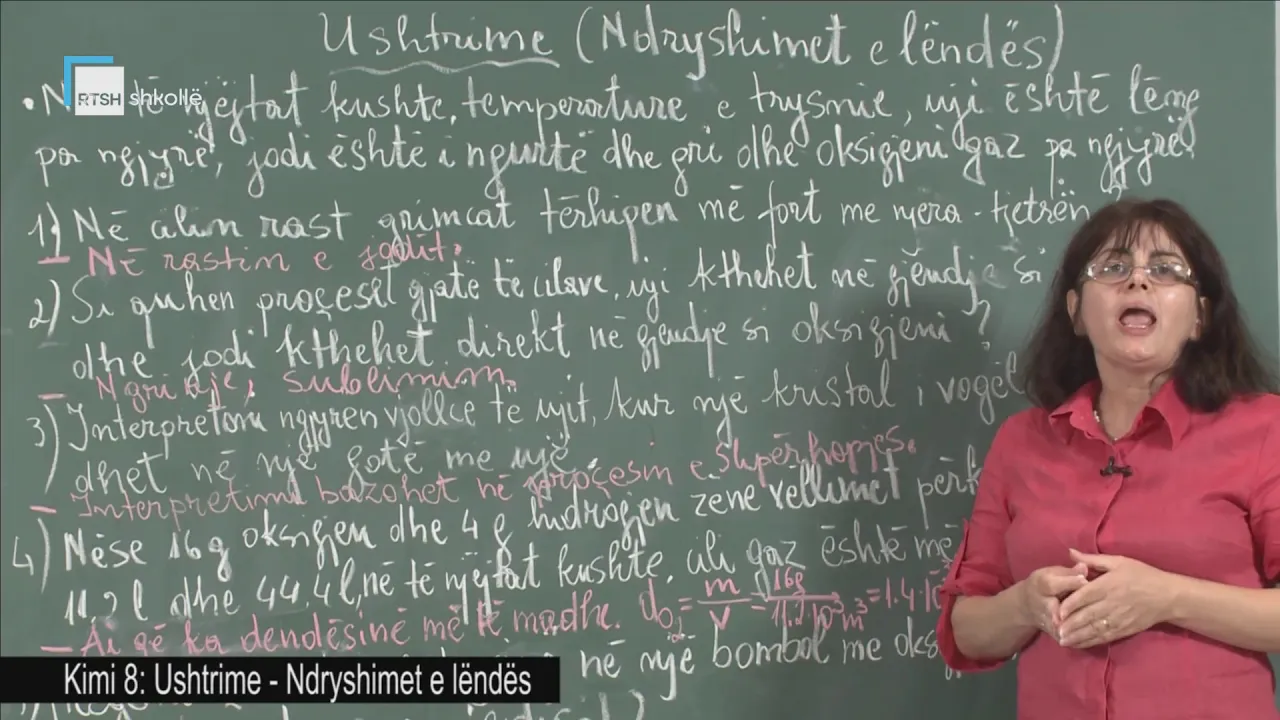 Ushtrime (Ndryshimet e lëndës)
RTSH shkollë
• N të njëjtat kushte, temperature e trysnie, uji është lëng
pa ngjyrë, jodi është i ngurtë dhe gri dhe oksigjeni gaz pa ngjyrë.
1) Në cilin rast grimcat tërhiqen më fort me njëra-tjetrën ?
– Në rastin e jodit.
2) Si quhen proceset gjatë të cilave, uji kthehet në gjendje si
dhe jodi kthehet direkt në gjendje si oksigjeni ?
– Ngrirje, sublimim.
3) Interpretoni ngjyrën vjollcë të ujit, kur një kristal i vogël
dhet në një gotë me ujë.
– Interpretimi bazohet në procesin e shpërhapjes.
4) Nëse 16g oksigjen dhe 4 g hidrogjen zënë vëllimet përk
11.2 l dhe 44.4 l, në të njëjtat kushte, cili gaz është më
– Ai që ka dendësinë më të madhe. d = m/V = 16g/11.2·10⁻³ m³ = 1.4·10
në një bombol me oks
Kimi 8: Ushtrime - Ndryshimet e lëndës